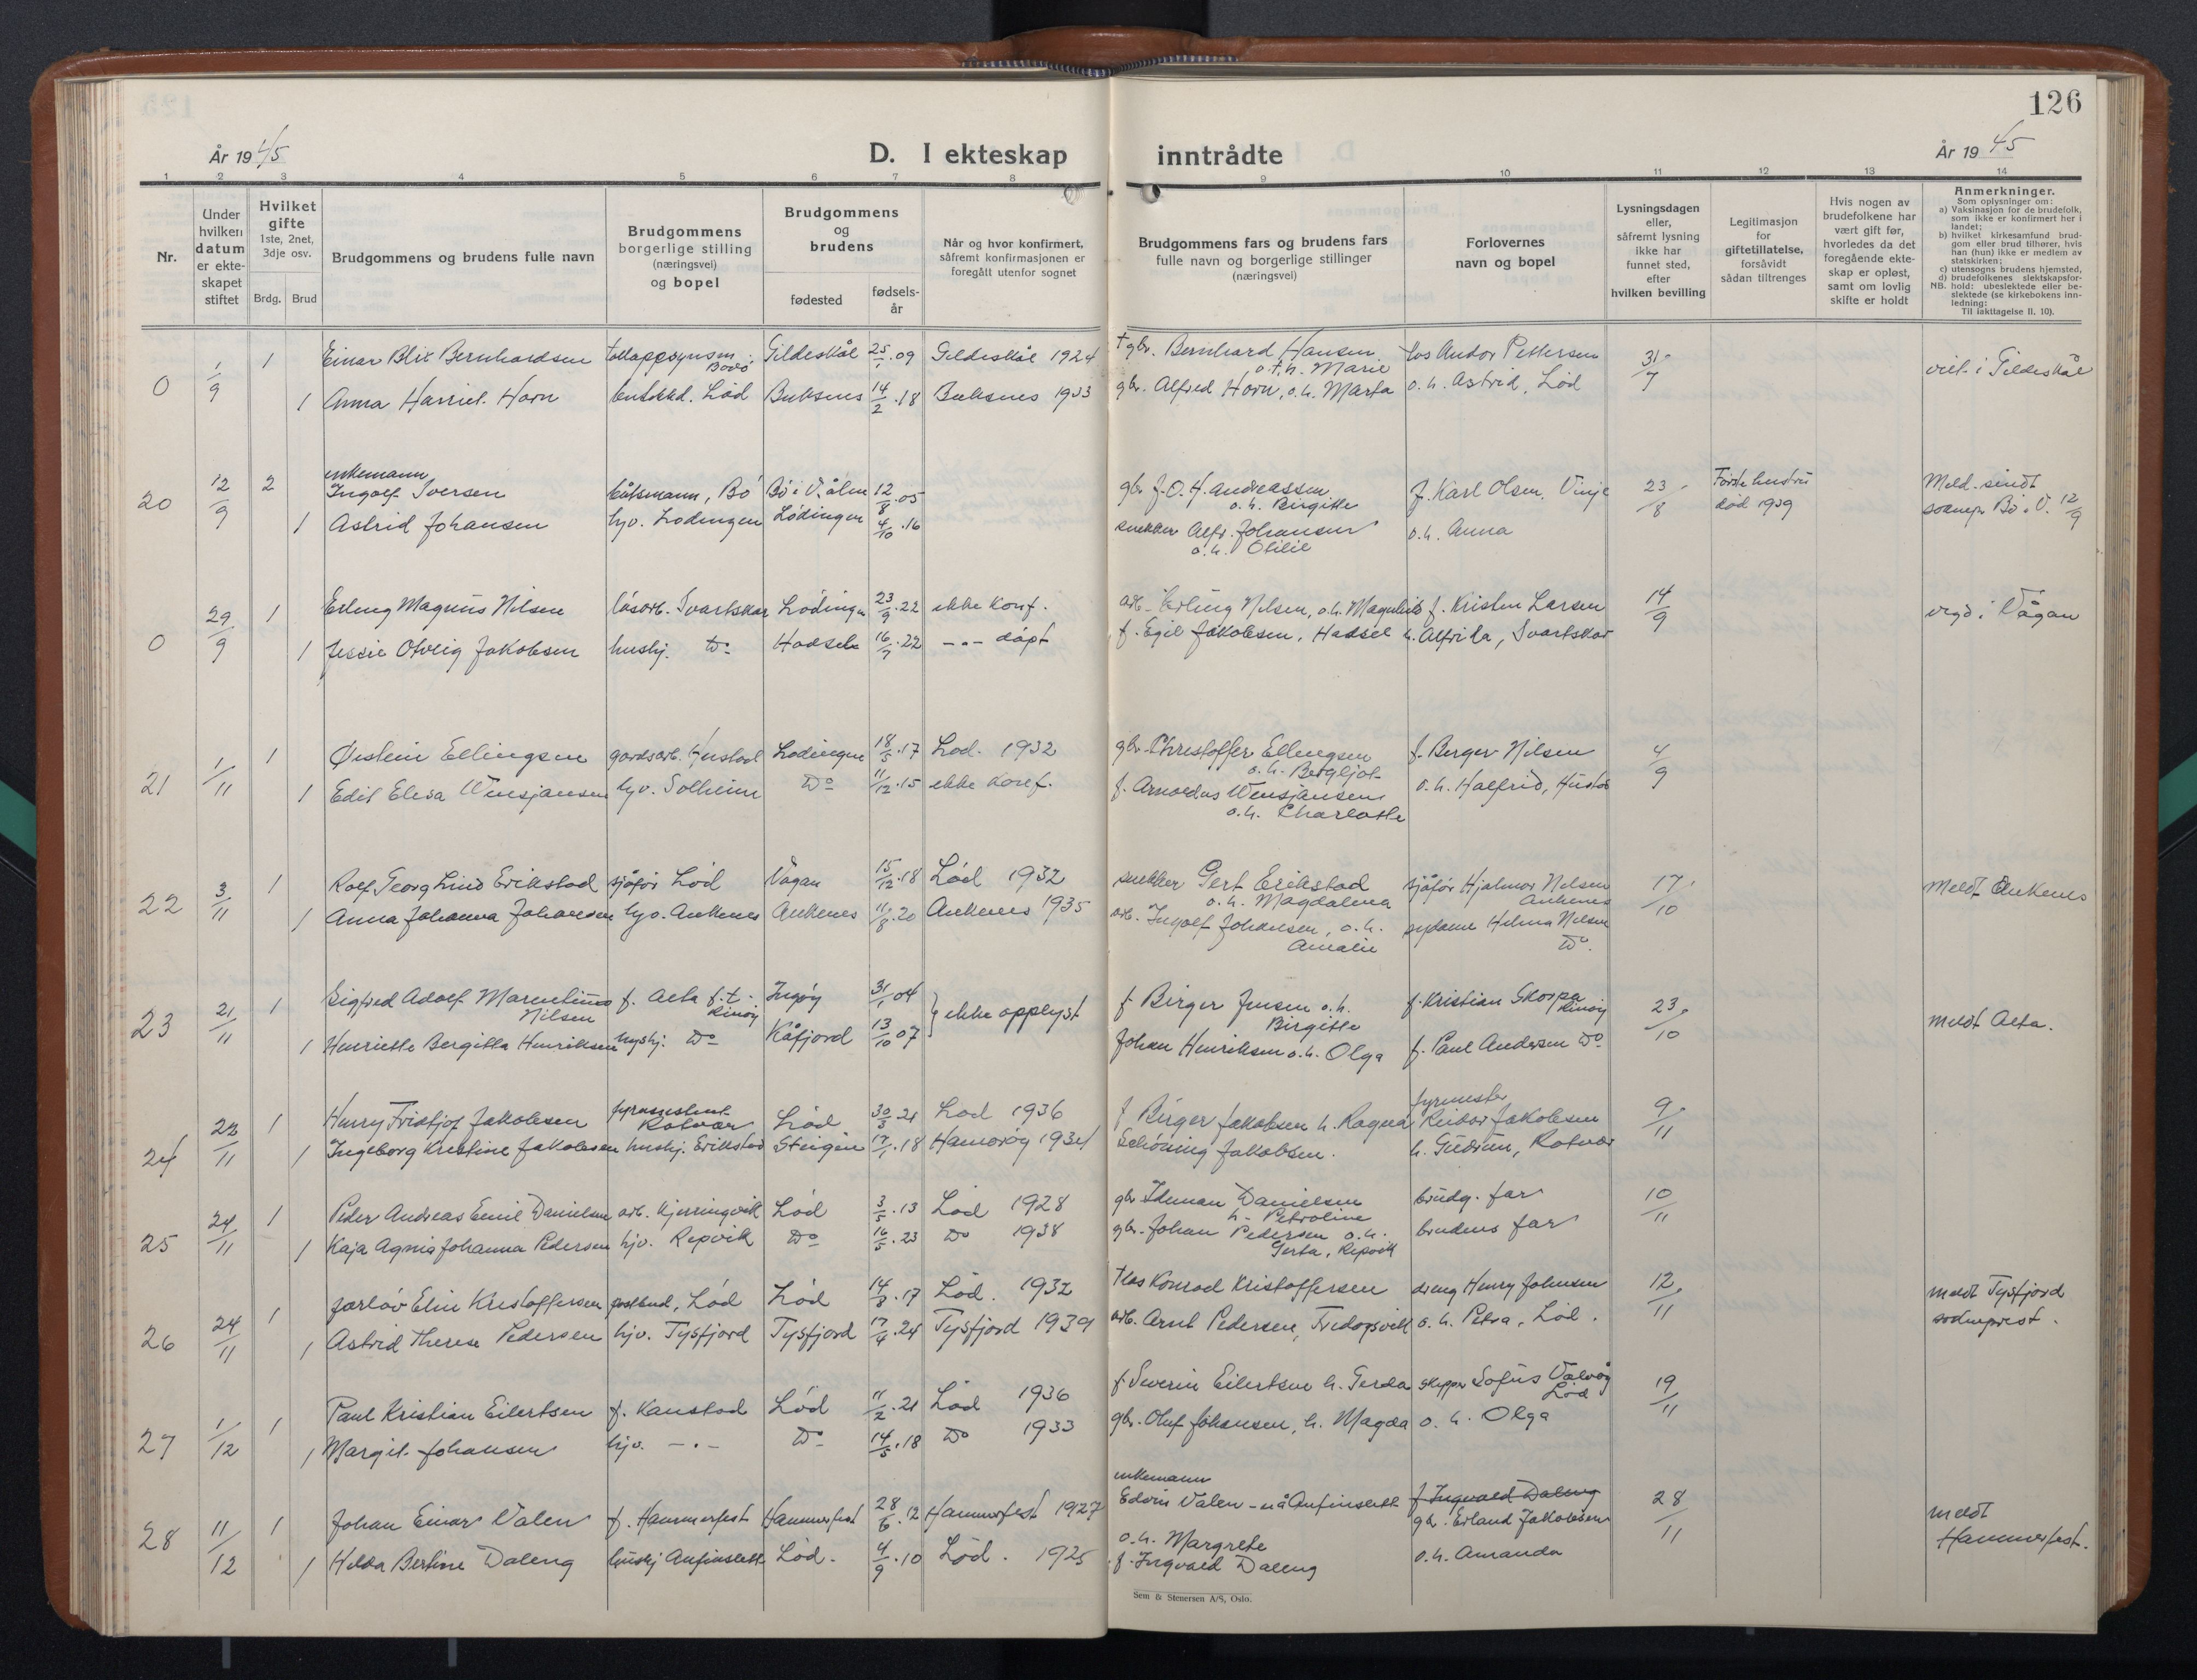 126
År 19 45
D. I ekteskap inntrådte
År 19 45
1 2 3 4 5 6 7 8 9 10 11 12 13 14
Nr.
Under hvilken datum er ekteskapet stiftet
Hvilket gifte 1ste, 2net, 3dje osv.
Brdg. Brud
Brudgommens og brudens fulle navn
Brudgommens borgerlige stilling (næringsvei) og bopel
Brudgommens og brudens
fødested
fødsels-år
Når og hvor konfirmert, såfremt konfirmasjonen er foregått utenfor sognet
Brudgommens fars og brudens fars fulle navn og borgerlige stillinger (næringsvei)
Forlovernes navn og bopel
Lysningsdagen eller, såfremt lysning ikke har funnet sted, efter hvilken bevilling
Legitimasjon for giftetillatelse, forsåvidt sådan tiltrenges
Hvis nogen av brudefolkene har vært gift før, hvorledes da det foregående ekteskap er opløst, samt om lovlig skifte er holdt
Anmerkninger.
Som oplysninger om:
a) Vaksinasjon for de brudefolk, som ikke er konfirmert her i landet;
b) hvilket kirkesamfund brudgom eller brud tilhører, hvis han (hun) ikke er medlem av statskirken;
c) utensogns brudens hjemsted,
d) brudefolkenes slektskapsfor-
NB. hold: ubeslektede eller beslektede (se kirkebokens innledning:
Til iakttagelse II, 10).
0 1/9 1 Einar Blix Bernhardsen Bodø Gildeskål 25/1 09 Gildeskål 1924 † gbr. Bernhard Hansen o. † h. Marie hos Andor Pettersen 31/7 viet i Gildeskål
1 Anna Harriet Horn Lød Buksnes 14/2 18 Buksnes 1933 gbr. Alfred Horn, o.h. Marta o.h. Astrid, Lød
20 12/9 2 enkemann Ingolf Iversen båtsmann, Bø Bø i V.ålen 12/8 05 gbr J.O.H. Andreassen o.h. Birgitte f. Karl Olsen, Vinje 23/8 Første hustru død 1939 Meld. sendt sognepr. Bø i V. 12/9
1 Astrid Johansen hjv. Lødingen Lødingen 4/10 16 snekker Alfr. Johansen o.h. Otilie o.h. Anna
0 29/9 1 Erling Magnus Nilsen løsarb. Svartskar Lødingen 23/9 22 ikke konf. arb. Erling Nilsen, o.h. Magnhild f. Kristen Larsen 14/9 vigd i Vågan
1 Jessie Otelig Jakobsen hushj. Do Hadsel 16/7 22 -"- døpt f. Egil Jakobsen, Hadsel h. Alfrida, Svartskar
21 1/11 1 Øistein Ellingsen gardsarb. Hustad Lødingen 18/5 17 Lød. 1932 gbr. Christoffer Ellingsen o.h. Bergljot f. Berger Nilsen 4/9
1 Edit Elisa Wensjansen hjv. Solheim Do 11/12 15 ikke konf. f. Arnoldus Wensjansen o.h. Charlotte o.h. Halfrid, Hustad
22 3/11 1 Rolf Georg Lind Erikstad sjåfør Lød Vågan 15/12 18 Lød 1932 snekker Gert Erikstad o.h. Magdalena sjåfør Hjalmar Nilsen Ankenes 17/10 Meldt Ankenes
1 Anna Johanna Johansen hjv. Ankenes Ankenes 11/8 20 Ankenes 1935 arb. Ingolf Johansen, o.h. Amalie sydame Helma Nilsen Do.
23 21/11 1 Sigfred Adolf Marentius Nilsen f. Alta f.t. Rinøy Ingøy 31/1 04 } ikke opplyst f Birger Jensen o.h. Birgitte f. Kristian Skospa Rinøy 23/10 meldt Alta.
1 Henriette Bergitta Henriksen hushj. Do Kåfjord 13/10 07 Johan Henriksen o.h. Olga f. Paul Andersen Do
24 22/11 1 Henry Fridtjof Jakobsen fyrassistent Rotvær Lød 30/3 21 Lød 1936 f Birger Jakobsen h. Ragna fyrmester Reidar Jakobsen 9/11
1 Ingeborg Kristine Jakobsen hushj. Erikstad Steigen 17/1 18 Hamarøy 1934 Schöning Jakobsen. h. Gudrun, Rotvær
25 24/11 1 Peder Andreas Emil Danielsen arb. Kjerringvik Lød 3/5 13 Lød 1928 gbr Iduman Danielsen h. Petroline brudg. far 10/11
1 Kaja Agnia Johanna Pedersen hjv. Repvik Do 16/5 23 Do 1938 gbr. Johan Pedersen o.h. Gerta, Repvik brudens far
26 24/11 1 Jarlov Elin Kristoffersen postbud, Lød Lød 14/8 17 Lød. 1932 Konrad Kristoffersen dreng Henry Johnsen 12/11 meldt Tysfjord sogneprest.
1 Astrid Therese Pedersen hjv. Tysfjord Tysfjord 17/4 24 Tysfjord 1939 arb. Arnt Pedersen, o.h. Petra, Lød.
27 1/12 1 Paul Kristian Eilertsen f. Kanstad Lød 11/2 21 Lød 1936 f Severin Eilertsen h. Gerda skipper Sofus Valvåg Lød 19/11
1 Margit Johansen hjv. -"- Do 14/5 18 Do 1933 gbr. Oluf Johansen, h. Magda o.h. Olga
28 11/12 1 Johan Einar Valen f. Hammerfest Hammerfest 28/6 12 Hammerfest 1927 enkemann Edvin Valen - nå Anfinslett f Ingvald Daleng gbr. Erland Jakobsen 28/11 meldt Hammerfest.
1 Hilda Bertine Daleng hushj Anfinslett Lød. 4/9 10 Lød. 1925 o.h. Margrete f. Ingvald Daleng o.h. Amanda
Sem & Stenersen A/S, Oslo.